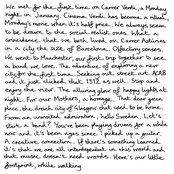 We met for the first time on Carrer Verdi, a Monday
night in January. Cinema Verdi has become a ritual,
Monday's movie, when it's half price. We always seem
to be drawn to the social realist ones. What a
coincidence that we both lived on Carrer Astúries
in a city the size of Barcelona. Olfactory senses.
We went to Manchester, our first trip together to see
a band we love. The adventure of exploring a new
city for the first time. Seeking out street art. ACAB
and it just clicked that 1312 as well. Stop and
enjoy the view. The alluring glow of happy lights at
night. For our Mothers, a homage. That dear green
place, the dovish city of Glasgow that used to be home.
From an uninvited admiration, hello Sweden. Let's
start a band? You've been playing drums for a while
now and it's been ages since I picked up a guitar.
A creative connection. If there's something learned
it's that we are all interdependent in this world and
that music doesn't need words. Here's our little
footprint, while walking